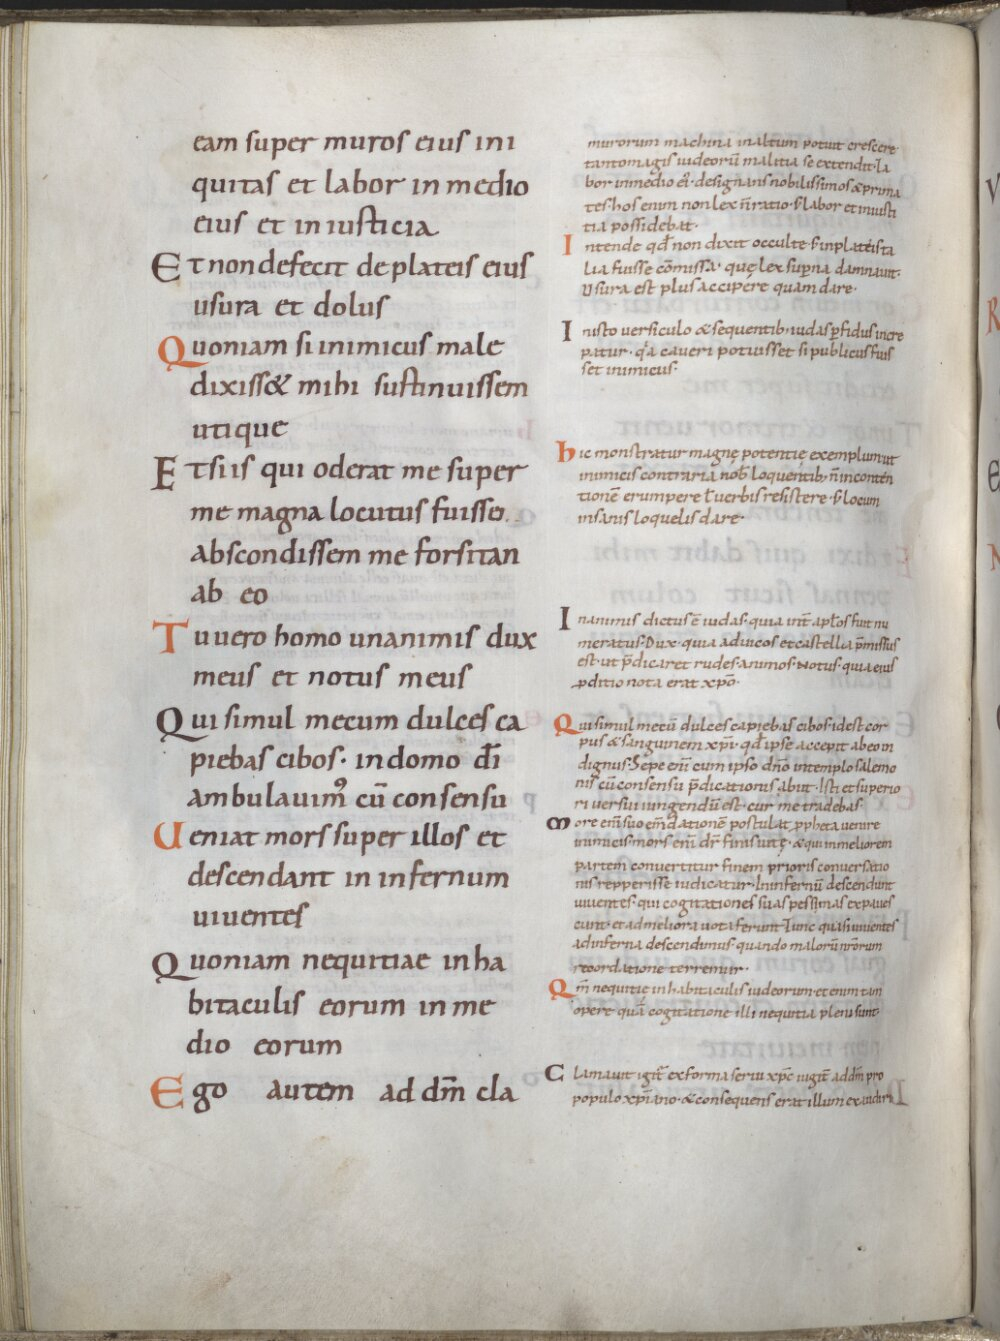 eam super muros eius ini
quitas et labor in medio
eius et in iusticia
Et non defecit de plateis eius
usura et dolus
Quoniam si inimicus male
dixiss& mihi sustinuissem
utique
Et si is qui oderat me super
me magna locutus fuisse
abscondissem me forsitan
ab eo
Tu uero homo unanimis dux
meus et notus meus
Qui simul mecum dulces ca
piebas cibos· in domo dī
ambulauim᾽ cū consensu
Ueniat mors super illos et
descendant in infernum
uiuentes
Quoniam nequitiae in ha
bitaculis eorum in me
dio eorum
Ego autem ad dm̄ cla
murorum machina in altum potuit crescere
tanto magis iudeorū malitia se extendit· la
bor in medio ei᾽· designans nobilissimos & prima
tes hos enim non lex n̄ ratio· s; labor et iniusti
tia possidebat·
Intende qd̄ non dixit occulte· s; in plateis ta
lia fuisse cōmissa· quę lex superna damnauit·
Usura est plus accipere quam dare·
In isto uersiculo & sequentib; iudas p̄fidus incre
patur· q'a caueri potuisset si publicus fuis
set inimicus·
hic monstratur magnę potentię exemplum ut
inimicis contraria nob' loquentib; n̄ in conten
tionē erumpere ł uerbis resistere· s; locum
insanis loquelis dare·
Inanimis dictus ē iudas· quia int̄ ap̄los fuit nu
meratus· Dux· quia ad uicos et castella p̄missus
est· ut p̄dicaret rudes animos· Notus· quia eius
ꝑditio nota erat xp̄o·
Qui simul mecū dulces capiebas cibos· id est cor
pus & sanguinem xp̄i· qd̄ ipse accepit ab eo in
dignus· Sepe eni᷒ cum ipso dn̄o in templo salemo
nis cū consensu p̄dicatorus abiit· Isti et superio
ri uersui iungendū est· cur me tradebas·
More eni᷒ suo em̄dationē postulat ꝓpheta uenire
inimicis· mors eni᷒ dr̄ finis uitę· & qui in meliorem
partem conuertitur finem prioris conuersatio
nis repperisse iudicatur· In infernū descendunt
uiuentes· qui cogitationes suas pessimas expaues
cunt· et ad meliora uota ferunt· Tunc quasi uiuentes
ad inferna descendimus quando malorū nr̄orum
recordatione terremur·
Qm̄ nequitie in habitaculis iudeorum· et enim tam
opere quā cogitatione illi nequitia pleni sunt·
Clamauit igit̄ ex forma serui xp̄c iugit̄ ad dm̄ pro
populo xp̄iano· & consequens erat illum exaudiri